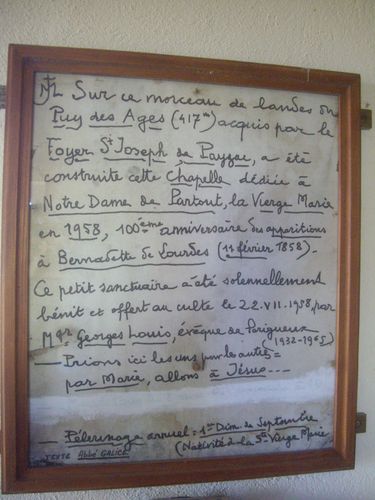 Sur ce morceau de landes du
Puy des Ages (417m) acquis par le
Foyer St Joseph de Payzac, a été
construite cette Chapelle dédiée à
Notre Dame de Partout, la Vierge Marie
en 1958, 100ème anniversaire des apparitions
à Bernadette de Lourdes (11 février 1858).
Ce petit sanctuaire a été solennellement
bénit et offert au culte le 22.VII.1958, par
Mgr Georges Louis, évêque de Périgueux
(1932-1965)
— Prions ici les uns pour les autres =
par Marie, allons à Jésus...
— Pèlerinage annuel = 1er Dim. de Septembre
(Nativité de la Ste Vierge Marie
TEXTE Abbé GALICE